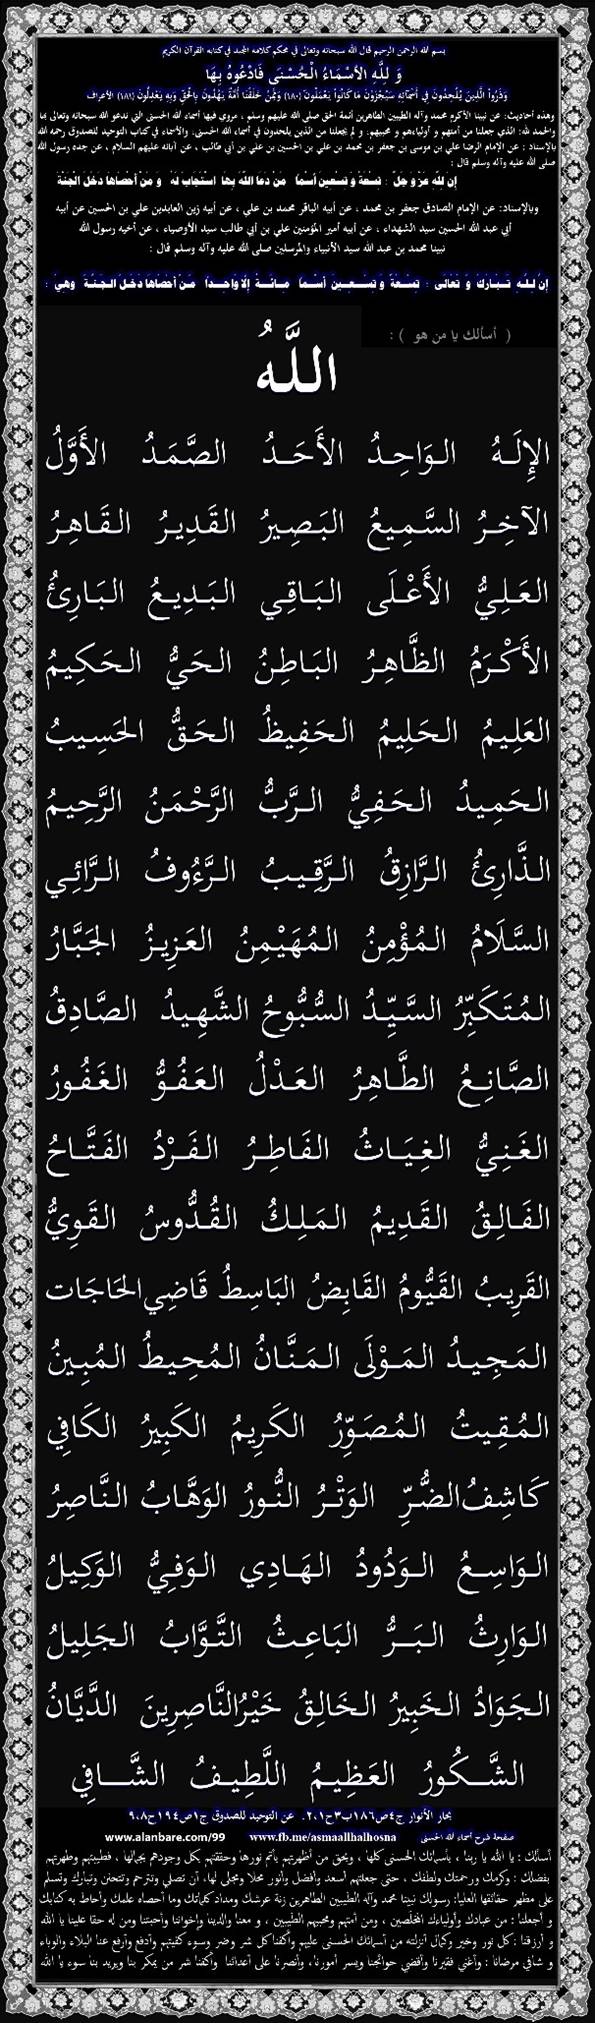 بسم الله الرحمن الرحيم قال الله سبحانه وتعالى في محكم كلامه المجيد في كتابه القرآن الكريم
وَ لِلَّهِ الأَسْمَاءُ الْحُسْنَى فَادْعُوهُ بِهَا
وَذَرُوا الَّذِينَ يُلْحِدُونَ فِي أَسْمَائِهِ سَيُجْزَوْنَ مَا كَانُوا يَعْمَلُونَ (١٨٠) وَمِمَّنْ خَلَقْنَا أُمَّةٌ يَهْدُونَ بِالْحَقِّ وَبِهِ يَعْدِلُونَ (١٨١) الأعراف
وهذه أحاديث: عن نبينا الأكرم محمد وآله الطيبين الطاهرين أئمة الحق صلى الله عليهم وسلم ، مروي فيها أسماء الله الحسنى التي ندعو الله سبحانه وتعالى بها
والحمد لله: الذي جعلنا من أمتهم و أوليائهم و محبيهم، و لم يجعلنا من الذين يلحدون في أسماء الله الحسنى، والأحاديث في كتاب التوحيد للصدوق رحمه الله
بالإسناد : عن الإمام الرضا علي بن موسى بن جعفر بن محمد بن علي بن الحسين بن علي بن أبي طالب ، عن آبائه عليهم السلام ، عن جده رسول الله
صلى الله عليه وآله وسلم قال :
إن لله عز و جل : تسعة و تسعين أسما من دعا الله بها استجاب له و من أحصاها دخل الجنة
وبالإسناد: عن الإمام الصادق جعفر بن محمد ، عن أبيه الباقر محمد بن علي ، عن أبيه زين العابدين علي بن الحسين عن أبيه
أبي عبد الله الحسين سيد الشهداء ، عن أبيه أمير المؤمنين علي بن أبي طالب سيد الأوصياء ، عن أخيه رسول الله
نبينا محمد بن عبد الله سيد الأنبياء والمرسلين صلى الله عليه وآله وسلم قال :
إن لله تبارك و تعالى : تسعة و تسعين أسما مائة إلا واحدا من أحصاها دخل الجنة وهي :
( أسألك يا من هو ) :
اللَّهُ
الإِلَهُ الوَاحِدُ الأَحَدُ الصَّمَدُ الأَوَّلُ
الآخِرُ السَّمِيعُ البَصِيرُ القَدِيرُ القَاهِرُ
العَلِيُّ الأَعْلَى البَاقِي البَدِيعُ البَارِئُ
الأَكْرَمُ الظَّاهِرُ البَاطِنُ الحَيُّ الحَكِيمُ
العَلِيمُ الحَلِيمُ الحَفِيظُ الحَقُّ الحَسِيبُ
الحَمِيدُ الحَفِيُّ الرَّبُّ الرَّحْمَنُ الرَّحِيمُ
الذَّارِئُ الرَّازِقُ الرَّقِيبُ الرَّءُوفُ الرَّائِي
السَّلَامُ المُؤْمِنُ المُهَيْمِنُ العَزِيزُ الجَبَّارُ
المُتَكَبِّرُ السَّيِّدُ السُّبُّوحُ الشَّهِيدُ الصَّادِقُ
الصَّانِعُ الطَّاهِرُ العَدْلُ العَفُوُّ الغَفُورُ
الغَنِيُّ الغِيَاثُ الفَاطِرُ الفَرْدُ الفَتَّاحُ
الفَالِقُ القَدِيمُ المَلِكُ القُدُّوسُ القَوِيُّ
القَرِيبُ القَيُّومُ القَابِضُ البَاسِطُ قَاضِي الحَاجَات
المَجِيدُ المَوْلَى المَنَّانُ المُحِيطُ المُبِينُ
المُقِيتُ المُصَوِّرُ الكَرِيمُ الكَبِيرُ الكَافِي
كَاشِفُ الضُّرِّ الوَتْرُ النُّورُ الوَهَّابُ النَّاصِرُ
الوَاسِعُ الوَدُودُ الهَادِي الوَفِيُّ الوَكِيلُ
الوَارِثُ البَرُّ البَاعِثُ التَّوَّابُ الجَلِيلُ
الجَوَادُ الخَبِيرُ الخَالِقُ خَيْرُ النَّاصِرِينَ الدَّيَّانُ
الشَّكُورُ العَظِيمُ اللَّطِيفُ الشَّافِي
بحار الأنوار ج٤ص١٨٦ب٣ح١،٢. عن التوحيد للصدوق ج١ص١٩٤ح٩،٨
صفحة شرح أسماء الله الحسنى www.fb.me/asmaallhalhosna www.alanbare.com/99
أسألك : يا الله يا ربنا ، بأسمائك الحسنى كلها ، وبحق من أظهرتهم بأتم نورها وحققتهم بكل وجودهم بجمالها ، فطيبتهم وطهرتهم
بفضلك : وكرمك ورحمتك ولطفك ، حتى جعلتهم أسعد وأفضل وأنور محلا ومجلى لها، أن تصلي وتترحم وتتحنن وتبارك وتسلم
على مظهر حقائقها العليا: رسولك نبينا محمد وآله الطيبين الطاهرين زنة عرشك ومداد كلماتك وما أحصاه علمك وأحاط به كتابك
و أجعلنا : من عبادك وأوليائك المخلصين ، ومن أمتهم ومحبيهم الطيبين ، و معنا والدينا وإخواننا وأحبتنا ومن له حقا علينا يا الله
و أرزقنا : كل نور وخير وكمال أنزلته من أسمائك الحسنى عليهم وأكفنا كل شر وضر وسوء كفيتهم وأدفع وأرفع عنا البلاء والوباء
و شافي مرضانا : وأغني فقيرنا وأقضي حوائجنا ويسر أمورنا، وأنصرنا على أعدائنا وأكفنا شر من يمكر بنا ويريد بنا سوء يا الله